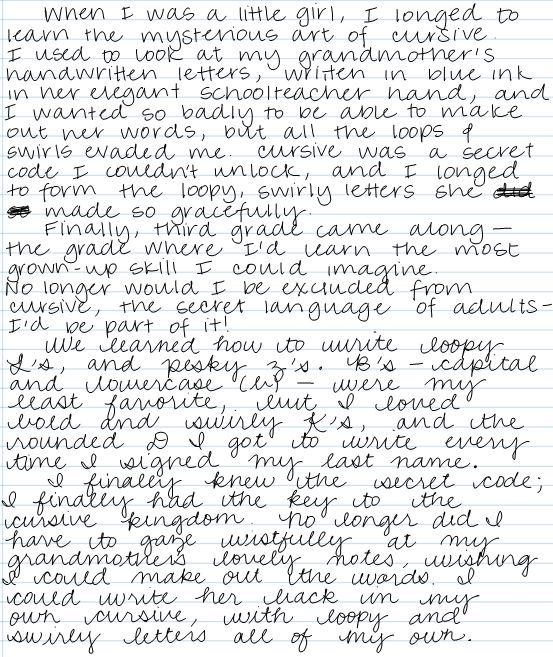 When I was a little girl, I longed to
learn the mysterious art of cursive.
I used to look at my grandmother's
handwritten letters, written in blue ink
in her elegant schoolteacher hand, and
I wanted so badly to be able to make
out her words, but all the loops &
swirls evaded me. Cursive was a secret
code I couldn't unlock, and I longed
to form the loopy, swirly letters she did
made so gracefully.
Finally, third grade came along—
the grade where I'd learn the most
grown-up skill I could imagine.
No longer would I be excluded from
cursive, the secret language of adults—
I'd be part of it!
We learned how to write loopy
L's, and pesky z's. B's – capital
and lowercase (b) – were my
least favorite, but I loved
bold and swirly K's, and the
rounded D I got to write every
time I signed my last name.
I finally knew the secret code;
I finally had the key to the
cursive kingdom. No longer did I
have to gaze wistfully at my
grandmothers lovely notes, wishing
I could make out the words. I
could write her back in my
own cursive, with loopy and
swirly letters all of my own.